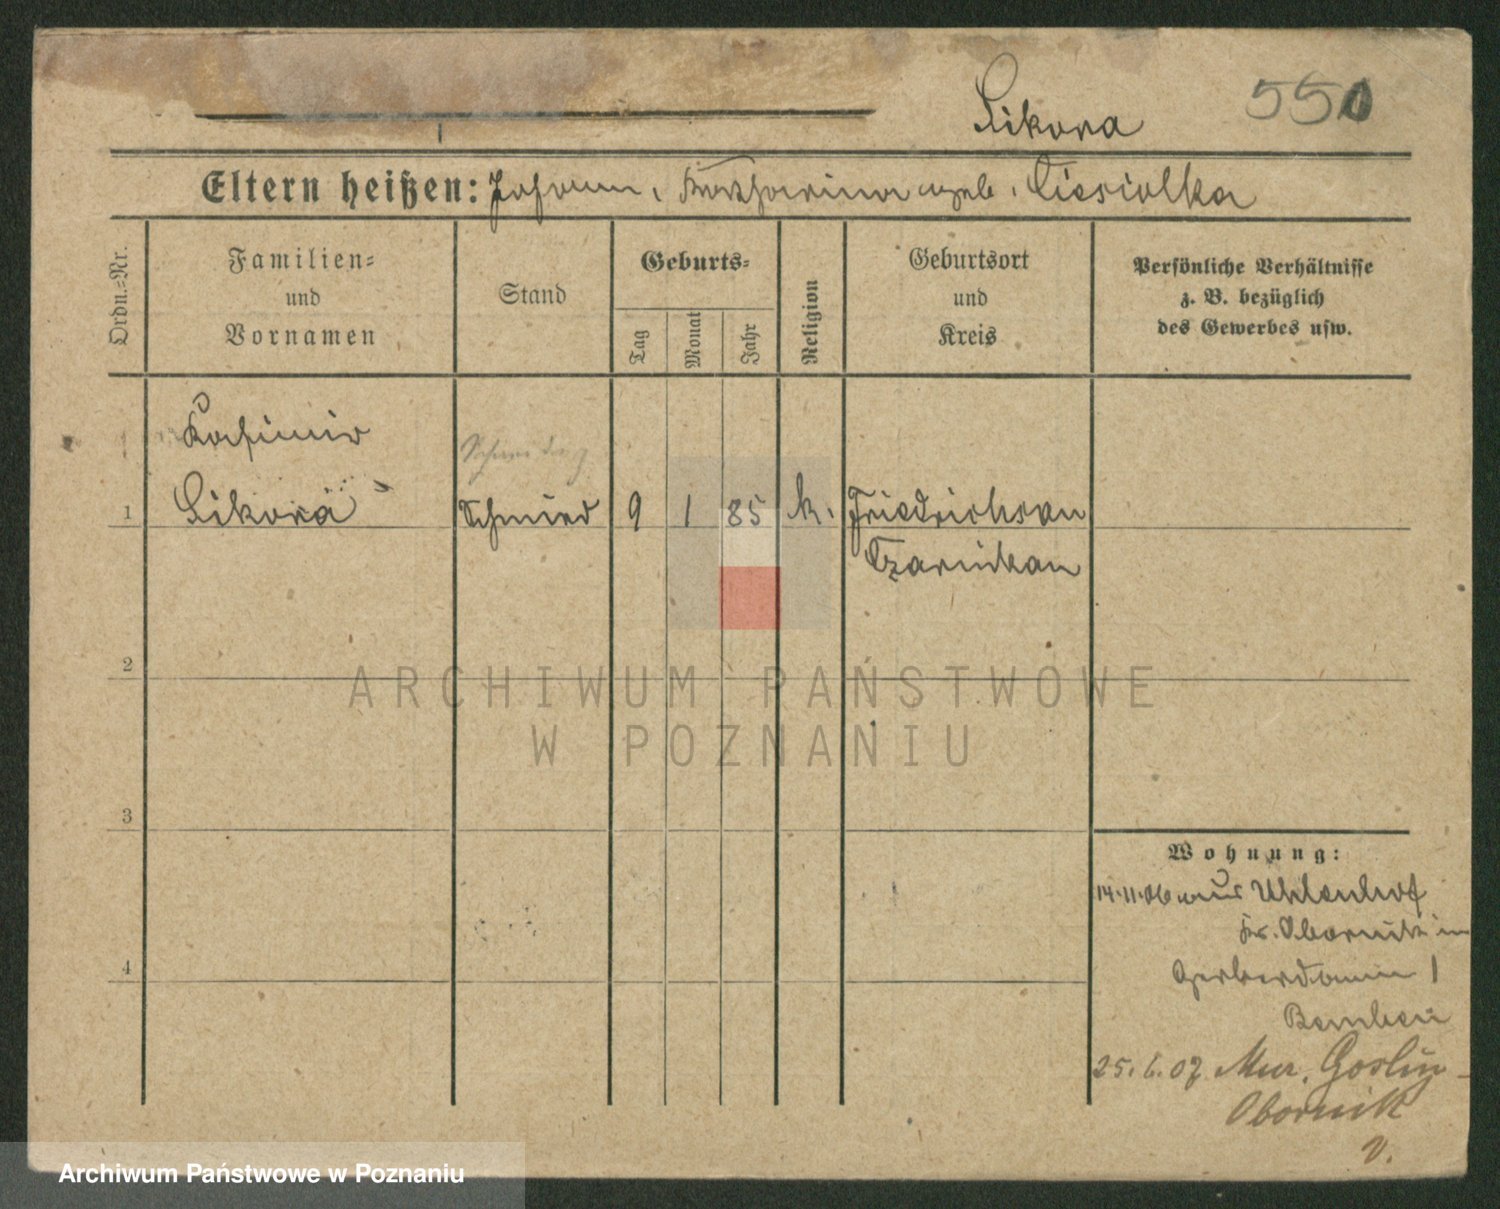 Sikora 550
Eltern heißen: Johann, Katharina geb. Ciesiolka
Ordn.-Nr.
Familien-
und
Vornamen
Stand
Geburts-
Tag
Monat
Jahr
Religion
Geburtsort
und
Kreis
Persönliche Verhältnisse
z. B. bezüglich
des Gewerbes usw.
Kasimir
1 Sikora Schmied 9 1 85 k. Friedrichsau
Czarnikau
2
ARCHIWUM PAŃSTWOWE
W POZNANIU
3
Wohnung:
14.11.06 aus Uhlenhof
Kr. Obornik in
Gerberdamm 1
25.6.07 Mur. Goslin
4
Obornik
v.
Archiwum Państwowe w Poznaniu